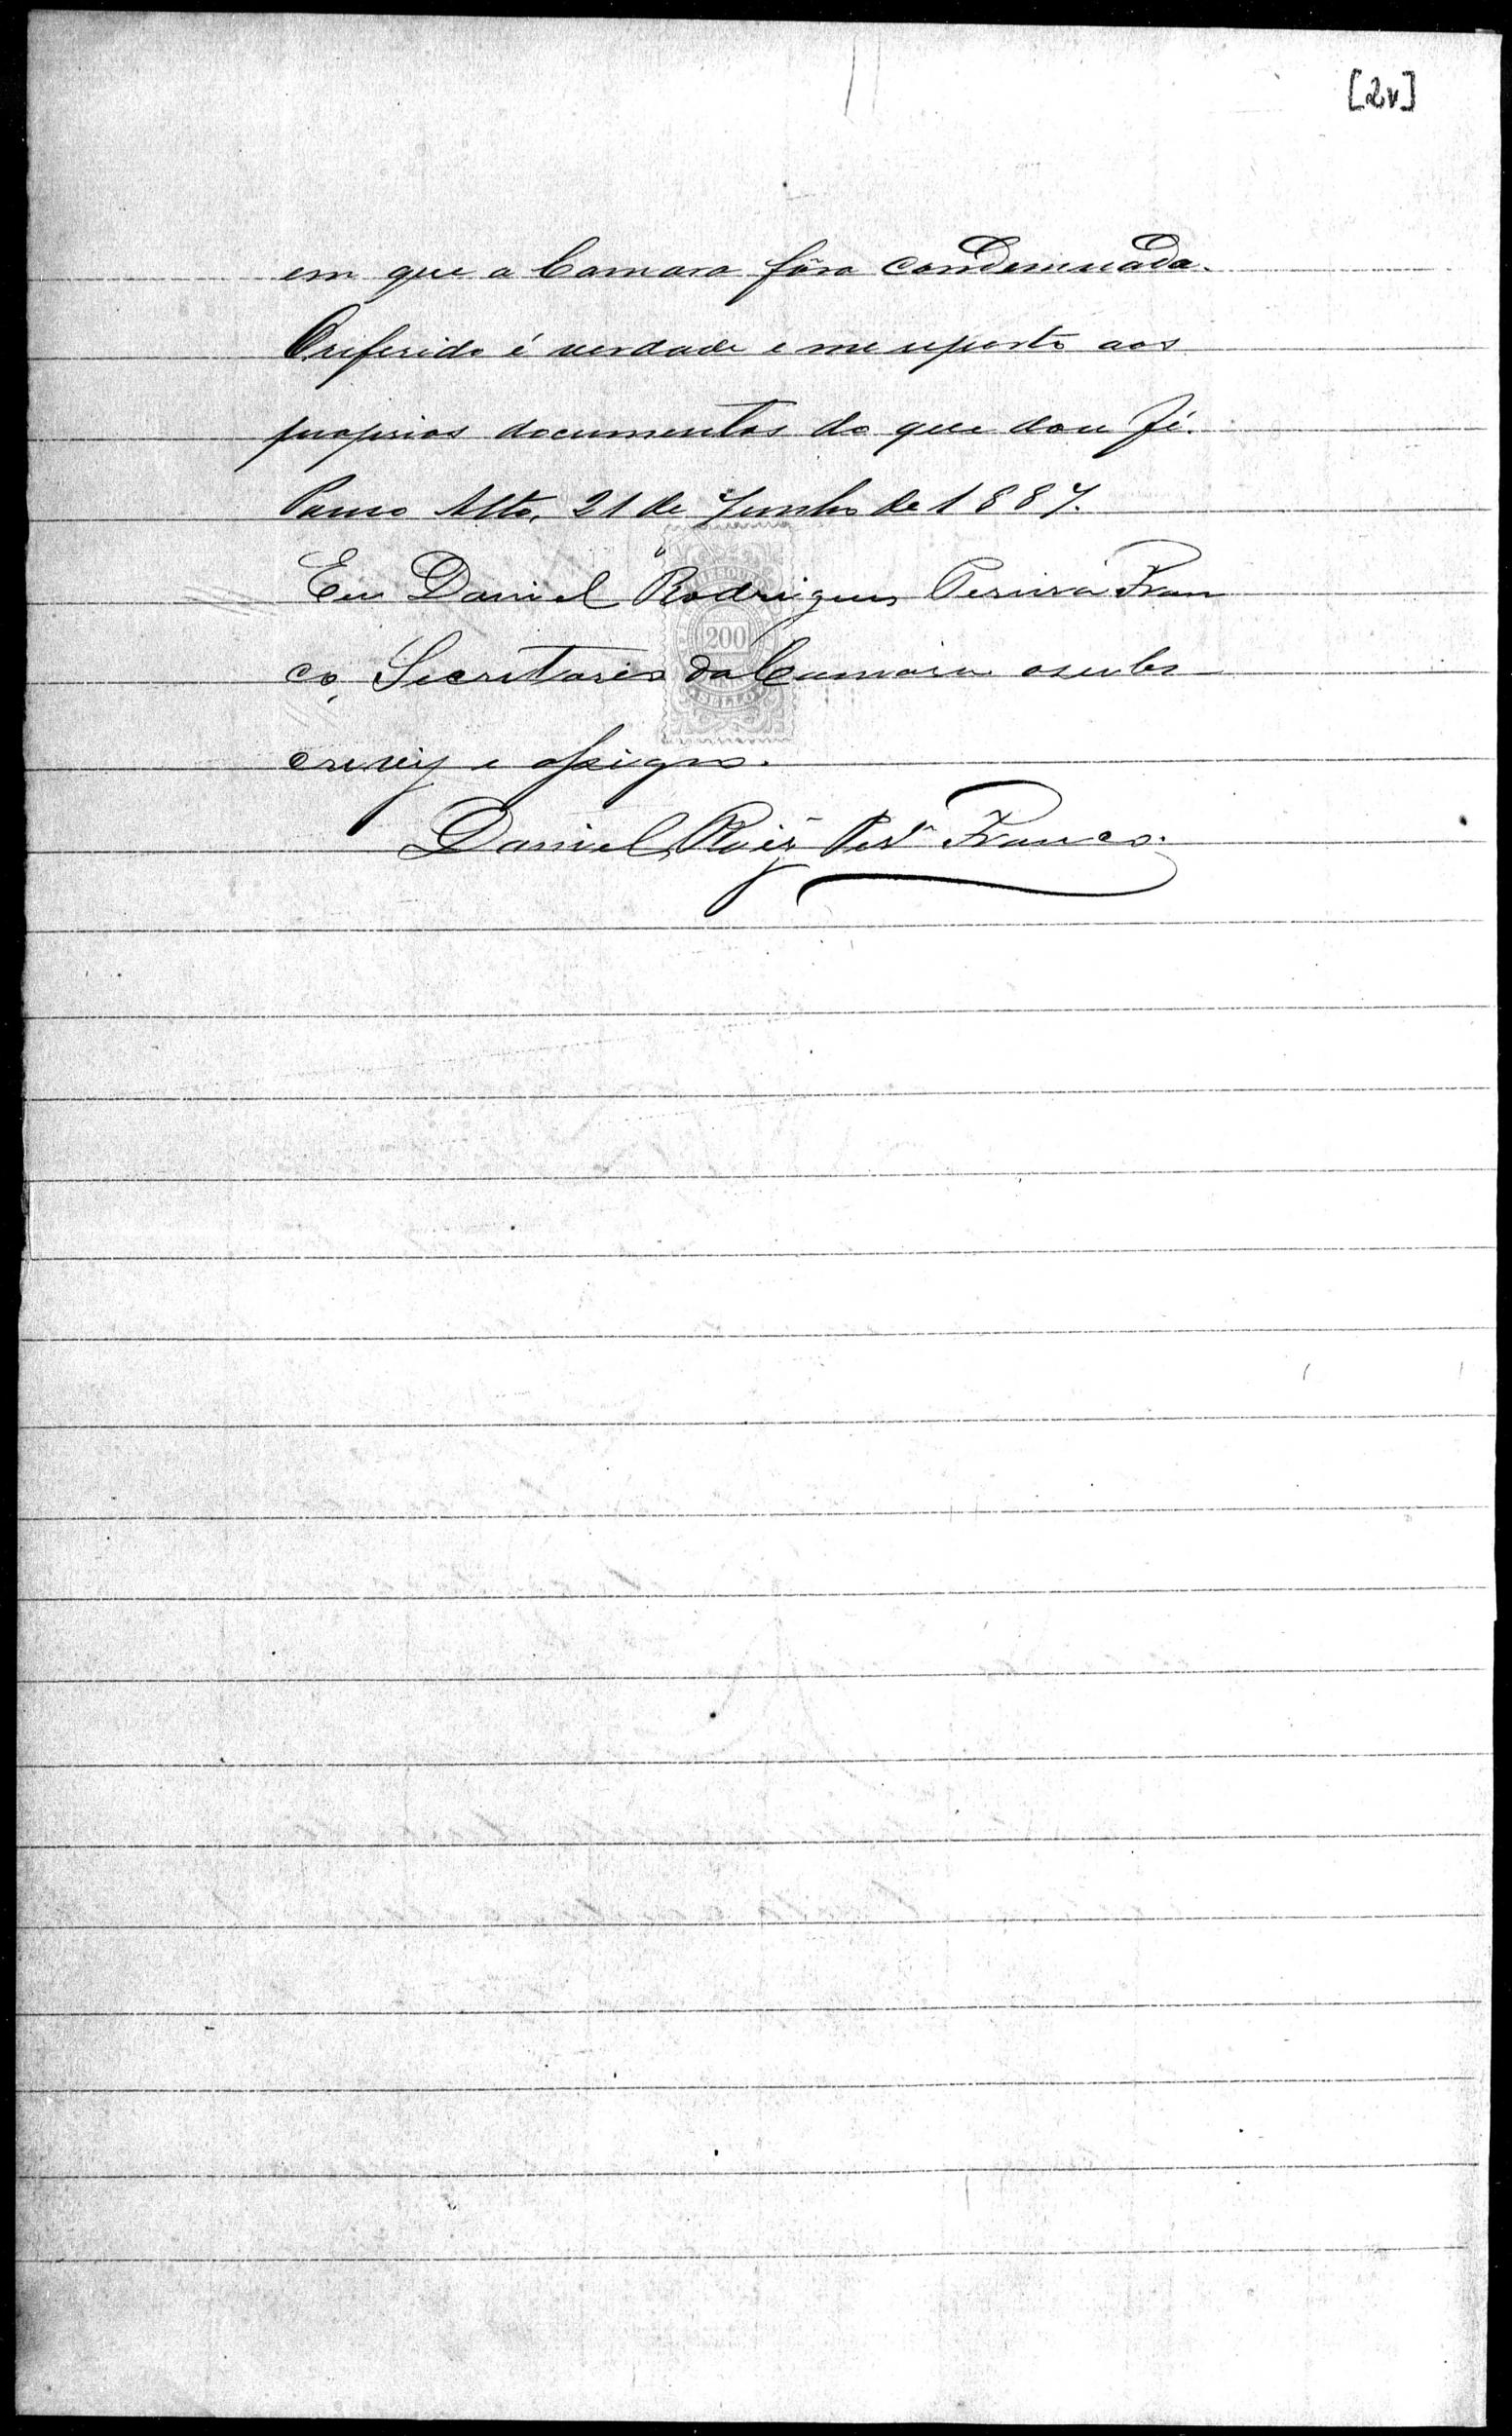 [2v]
em que a Camara fôra condemnada.
O referido é verdade e me reporto aos
proprios documentos do que dou fé.
Pouso Alto, 21 de Junho de 1887.
Eu Daniel Rodrigues Pereira Fran
co, Secretario da Camara o subs
crevy e assigno.
200
SELLO
Daniel Roiz Per.ª Franco.